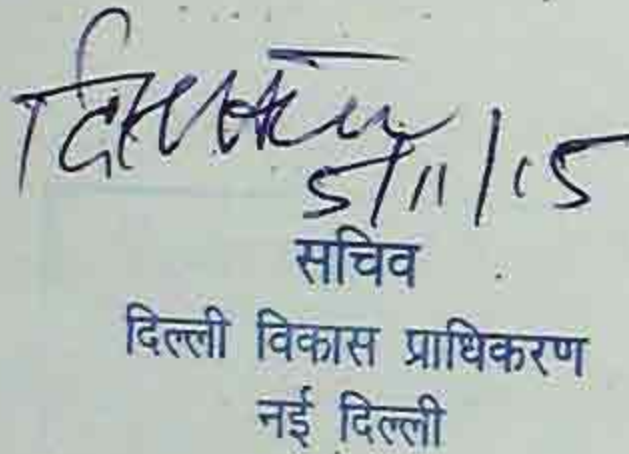 5/11/15
सचिव
दिल्ली विकास प्राधिकरण
नई दिल्ली